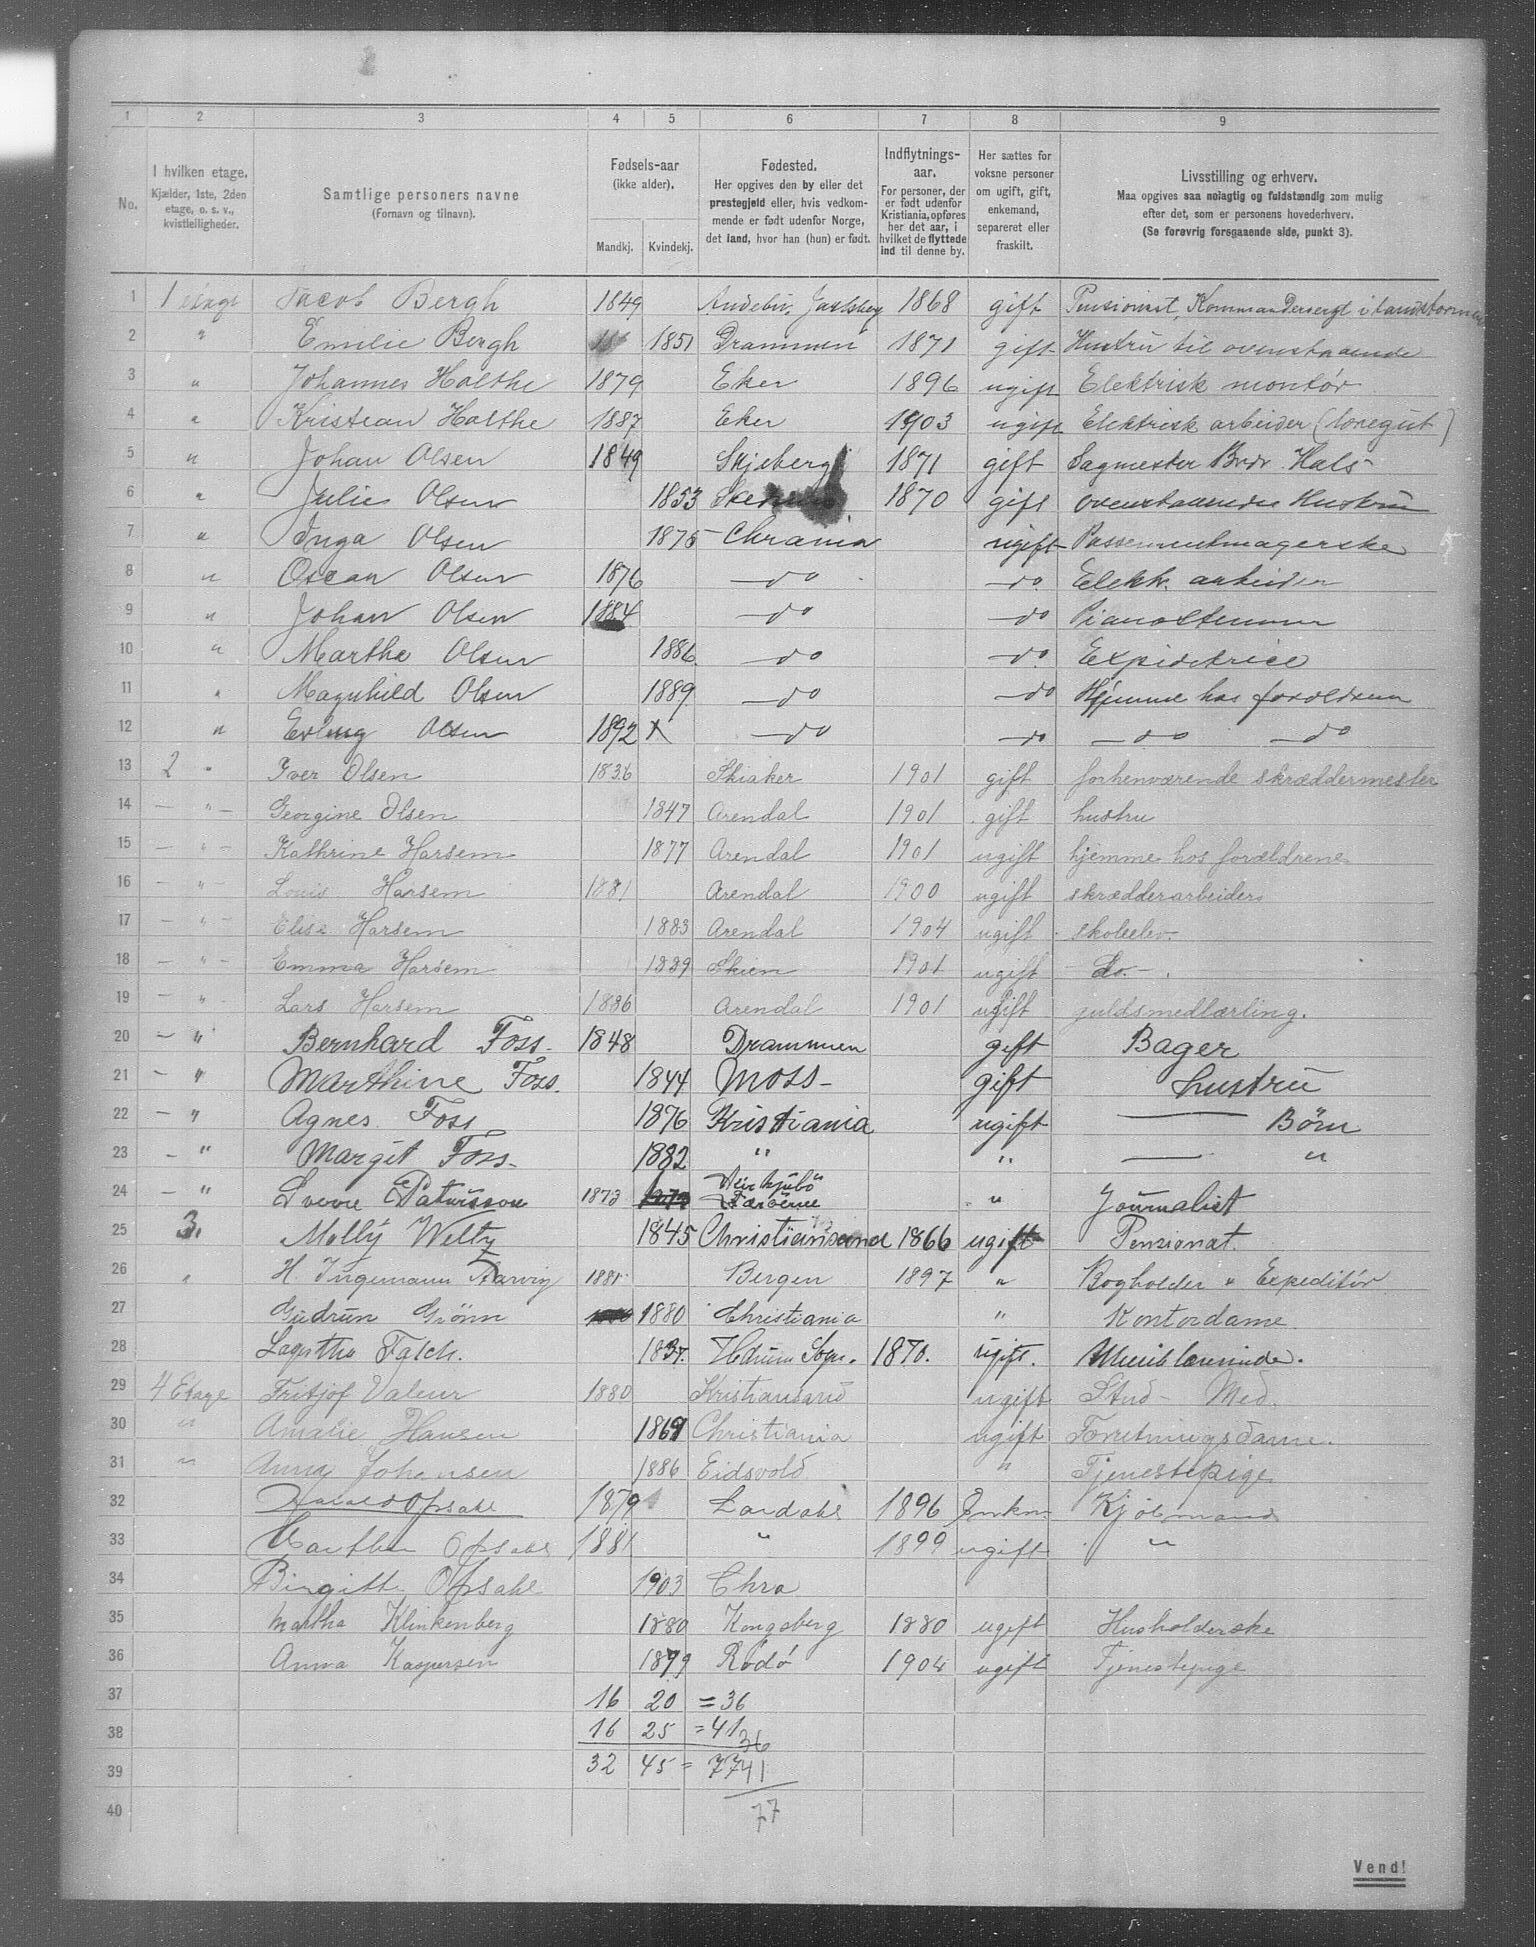 1 2 3 4 5 6 7 8 9
No.
I hvilken etage.
Kjælder, 1ste, 2den
etage, o. s. v.,
kvistleiligheder.
Samtlige personers navne
(Fornavn og tilnavn).
Fødsels-aar
(ikke alder).
Mandkj. Kvindekj.
Fødested.
Her opgives den by eller det
prestegjeld eller, hvis vedkom-
mende er født udenfor Norge,
det land, hvor han (hun) er født.
Indflytnings-
aar.
For personer, der
er født udenfor
Kristiania, opføres
her det aar, i
hvilket de flyttede
ind til denne by.
Her sættes for
voksne personer
om ugift, gift,
enkemand,
separeret eller
fraskilt.
Livsstilling og erhverv.
Maa opgives saa nøiagtig og fuldstændig som mulig
efter det, som er personens hovederhverv.
(Se forøvrig forsgaaende side, punkt 3).
1 1 etage Jacob Bergh 1849 Andebu, Jarlsberg 1868 gift Pensionist, Kommandersergt i
2 " Emilie Bergh 1851 Drammen 1871 gift Hustru til ovenstaaende
3 " Johannes Holthe 1879 Eker 1896 ugift Elektrisk montør
4 " Kristian Holthe 1887 Eker 1903 ugift Elektrisk arbeider (løregut)
5 " Johan Olsen 1849 Skjeberg 1871 gift Sagmester Brdr. Hals
6 " Julie Olsen 1853 1870 gift ovenstaaendes Hustru
7 " Inga Olsen 1875 Chrania ugift Passementmagerske
8 " Oscar Olsen 1876 — do — do Elektr. arbeider
9 " Johan Olsen 1884 — do — do Pianostemmer
10 " Marthe Olsen 1886 — do — do Expidetrice
11 " Magnhild Olsen 1889 — do — do Hjemme hos foreldrene
12 " Erling Olsen 1892 x — do — do — do — do
13 2 " Iver Olsen 1836 Skiaker 1901 gift forhenværende skræddermester
14 — " — Georgine Olsen 1847 Arendal 1901 gift hustru
15 — " — Kathrine Harsem 1877 Arendal 1901 ugift hjemme hos forældrene
16 — " — Louis Harsem 1881 Arendal 1900 ugift skrædderarbeider
17 — " — Elise Harsem 1883 Arendal 1904 ugift skoleelev.
18 — " — Emma Harsem 1889 Skien 1901 ugift — Do. —
19 — " — Lars Harsem 1886 Arendal 1901 ugift guldsmedlærling.
20 — " Bernhard Foss 1848 Drammen gift Bager
21 — " Marthine Foss. 1844 Moss gift hustru
22 — " Agnes Foss 1876 Kristiania ugift — Børn
23 — " Margit Foss 1882 " " — "
24 — " Sverre Patursson 1873 Kirkjubö Færöerne " Journalist
25 3. Molly Welty 1845 Christiansund 1866 ugift Pensionat.
26 " H. Ingemann Farvig 1881 Bergen 1897 " Bogholder & Expeditør
27 Gudrun Grönn 1880 Christiania " Kontordame
28 Lagertha Falch. 1837. Hedrum Sogn. 1870. ugift. Musiklærerinde.
29 4 Etage Fritjof Valeur 1880 Kristiansand ugift Stud — Med.
30 " Amalie Hansen 1869 Christiania ugift Forretningsdame.
31 " Anna Johansen 1886 Eidsvold " Tjenestepige
32 Harald Opsahl 1879 Lardahl 1896 Enkm. Kjöbmand
33 Opsahl 1881 " 1899 ugift "
34 Birgitt Opsahl 1903 Chra
35 Martha Klinkenberg 1880 Kongsberg 1880 ugift Husholderske
36 Anna Kaspersen 1879 Rödö 1904 ugift Tjenestepige
37 16 20 = 36
38 16 25 = 41
39 32 45 = 77
36
41
77
40
Vend!